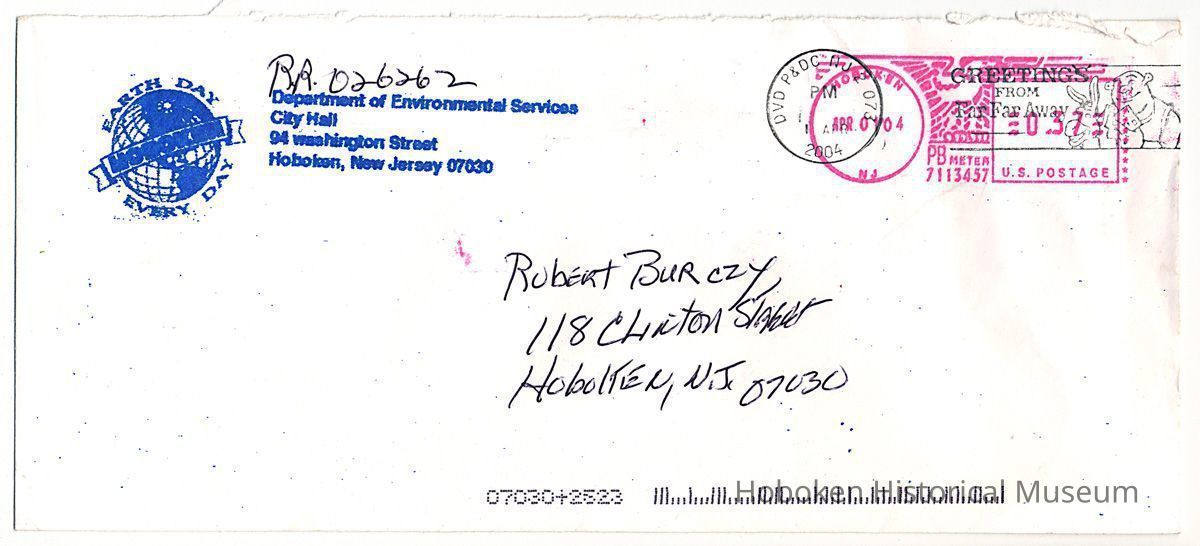 EARTH DAY
HOBOKEN
EVERY DAY
R.A. 026262
Department of Environmental Services
City Hall
94 washington Street
Hoboken, New Jersey 07030
DVD P&DC NJ 073
PM
2004
HOBOKEN
APR. 0 04
NJ
PB METER
7113457
U.S. POSTAGE
GREETINGS
FROM
Far Far Away
0.37
Robert Burczy
118 Clinton Street
Hoboken, N.J. 07030
07030+2523
Hoboken Historical Museum